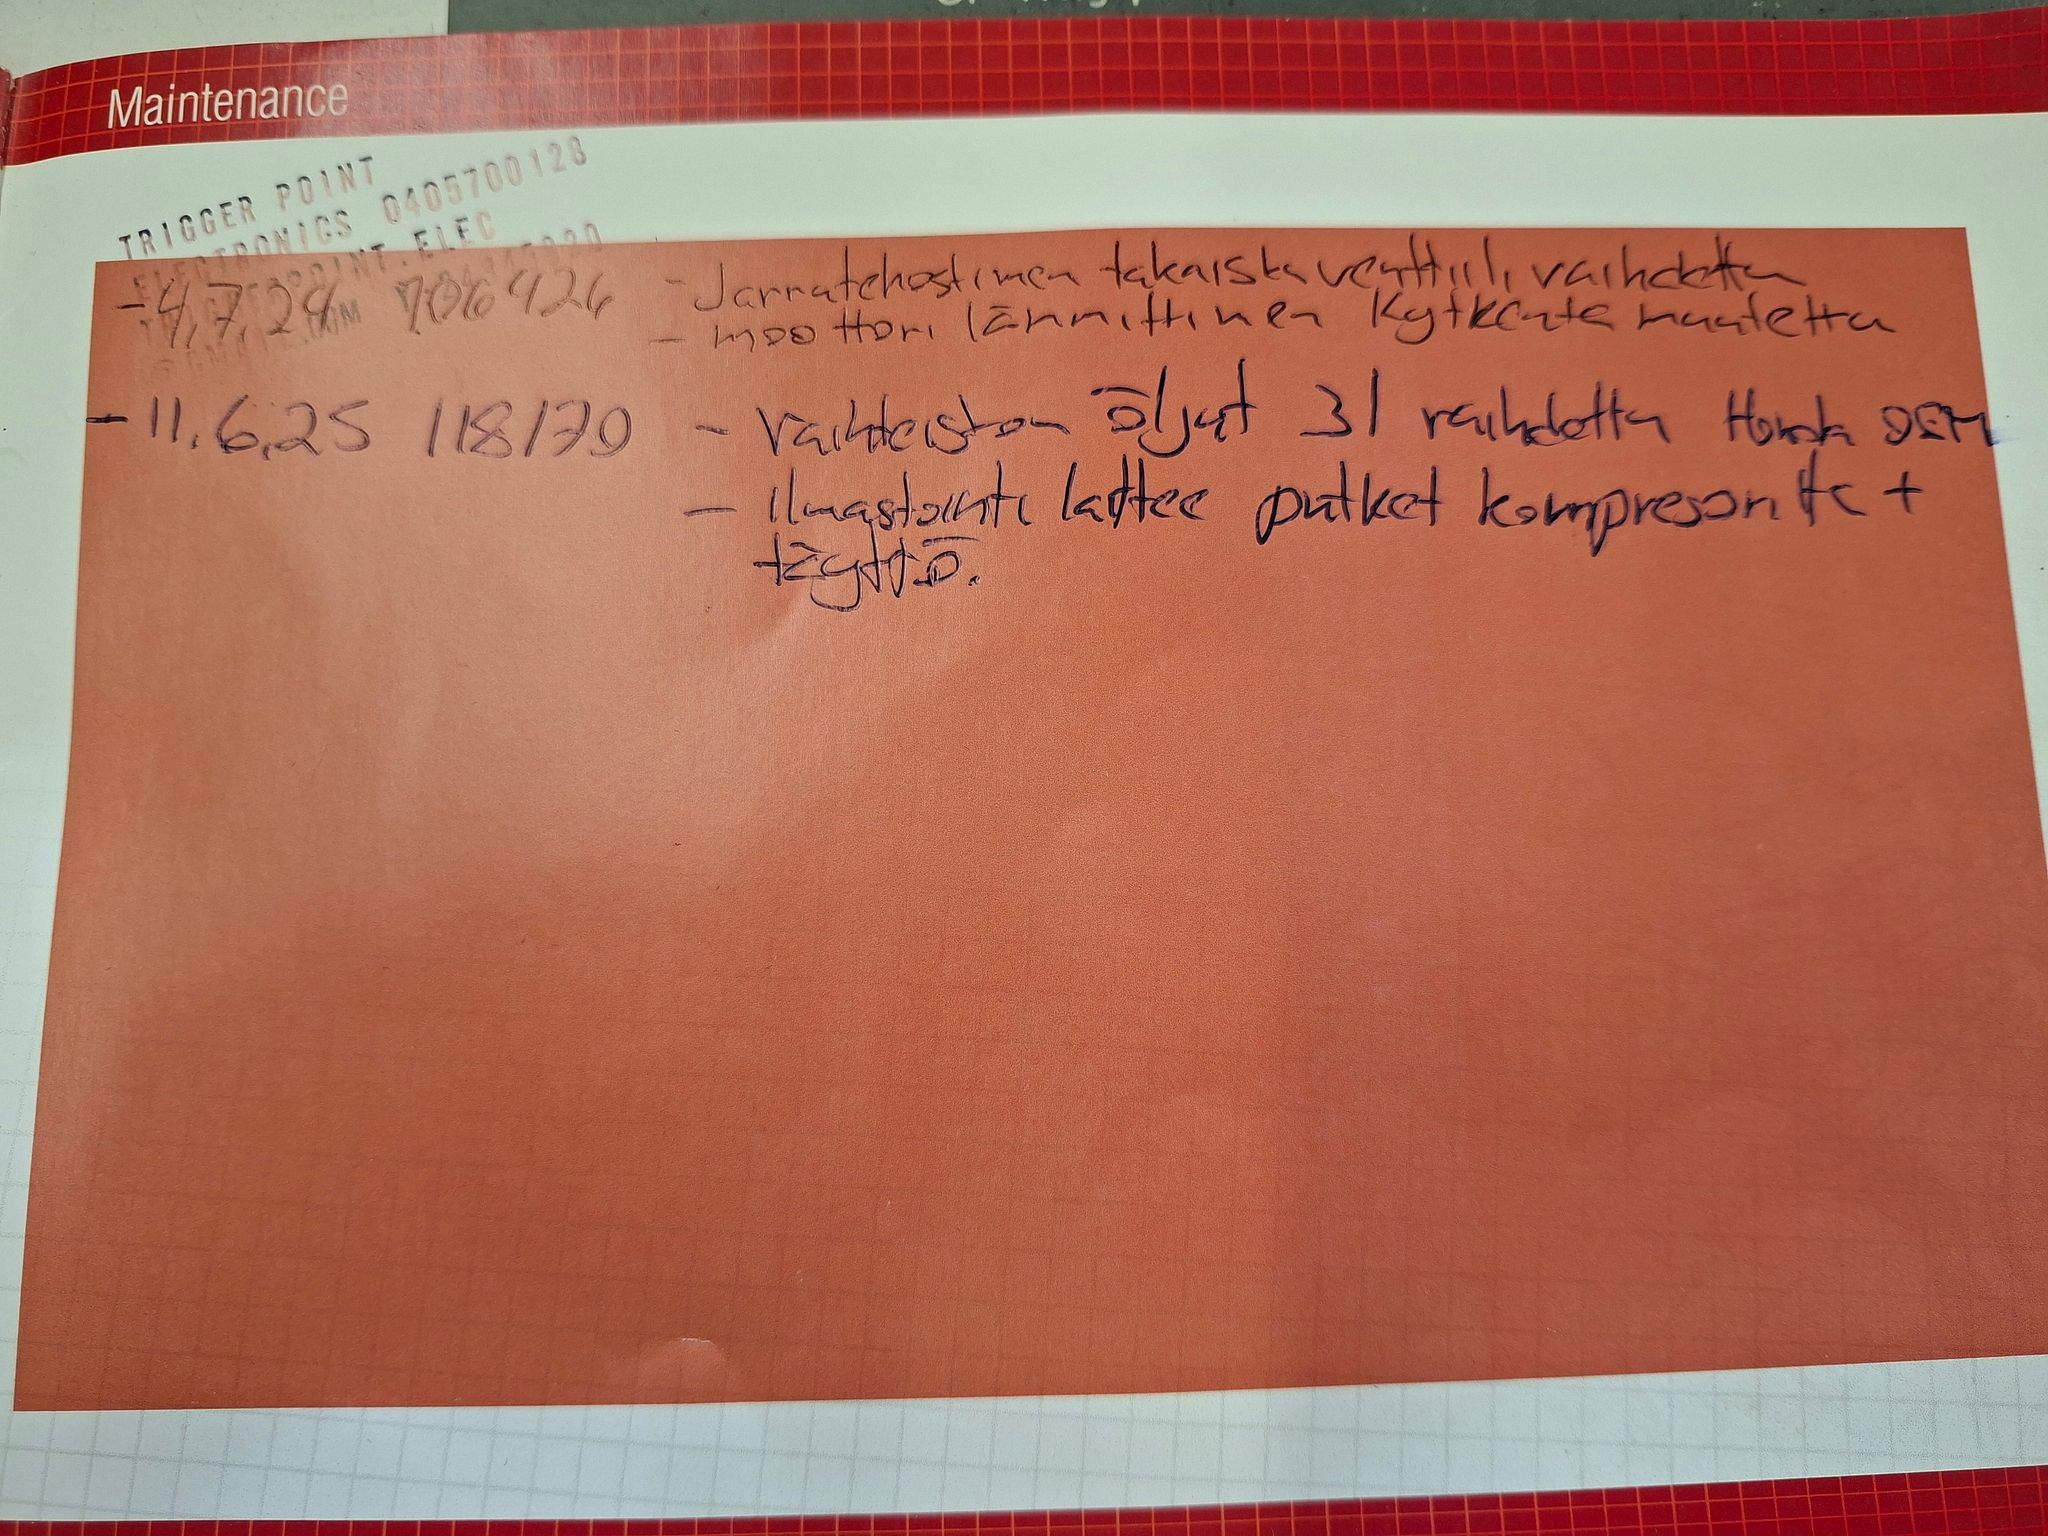 Maintenance
TRIGGER POINT
ELECTRONICS 0405700128
POINT.ELEC
- 4.7.24 106426 - Jarrutehostimen takaiskuventtiili vaihdettu
- moottori lämmittimen kytkentä muutettu
- 11.6.25 118170 - Vaihteiston öljyt 3l vaihdettu Honda OEM
- ilmastointi laitee putket kompresorille +
täyttö.